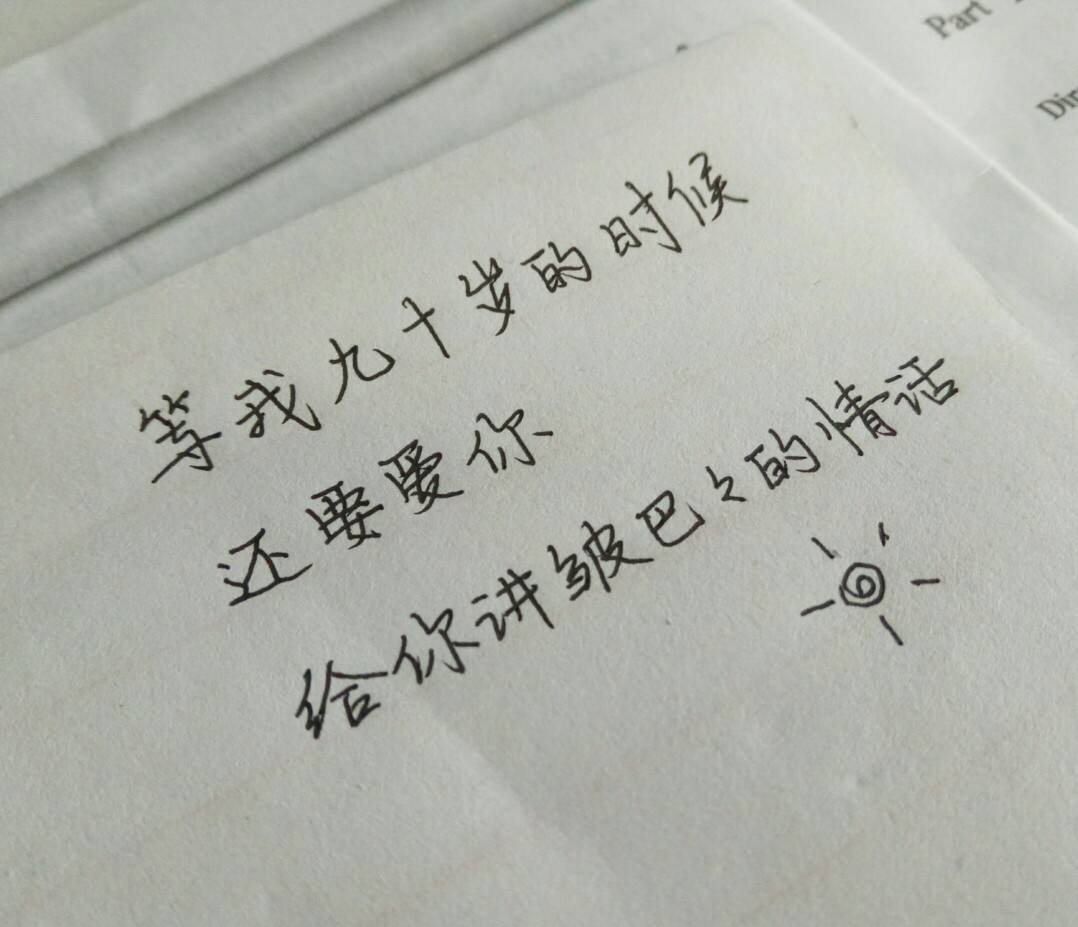 Part
等我九十岁的时候
还要爱你
给你讲皱巴々的情话